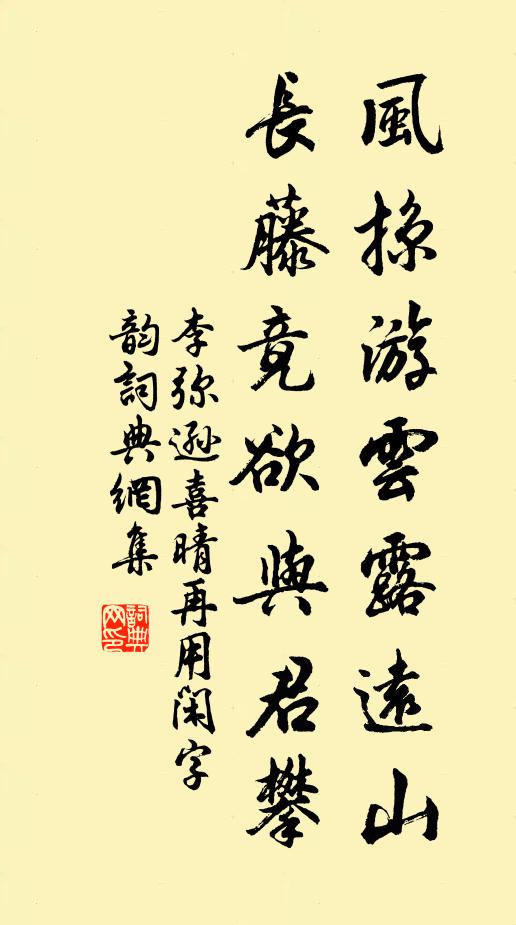 風掠游雲露遠山
長藤竟欲與君攀
李弥遜喜晴再用閑字
韵詞典網集
詞典網印